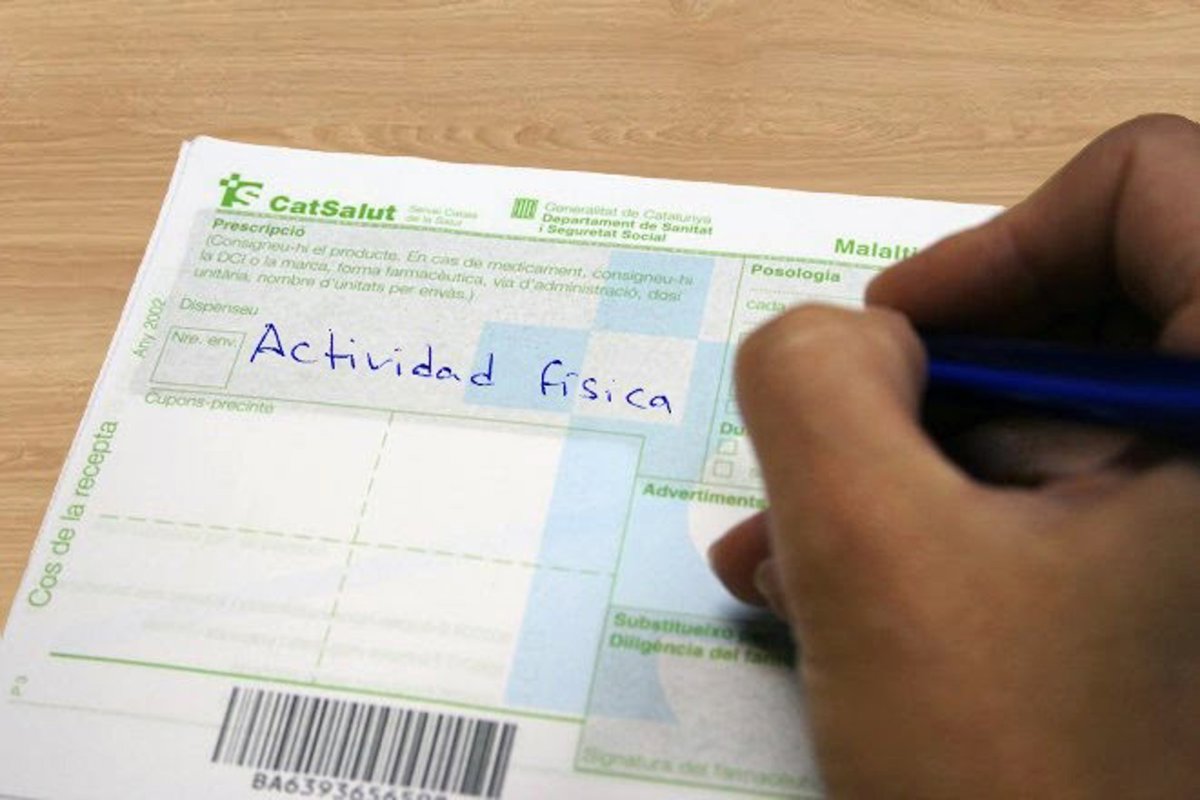 CatSalut
Servei Català
de la Salut
Generalitat de Catalunya
Departament de Sanitat
i Seguretat Social
Prescripció
(Consigneu-hi el producte. En cas de medicament, consigneu-hi
la DCI o la marca, forma farmacèutica, via d'administració, dosi
unitària, nombre d'unitats per envàs.)
Dispenseu
Nre. env.
Actividad física
Posologia
cada
Advertiments
Cupons-precinte
Substitueixo
Diligència del
Signatura del
Any 2002
Cos de la recepta
P3